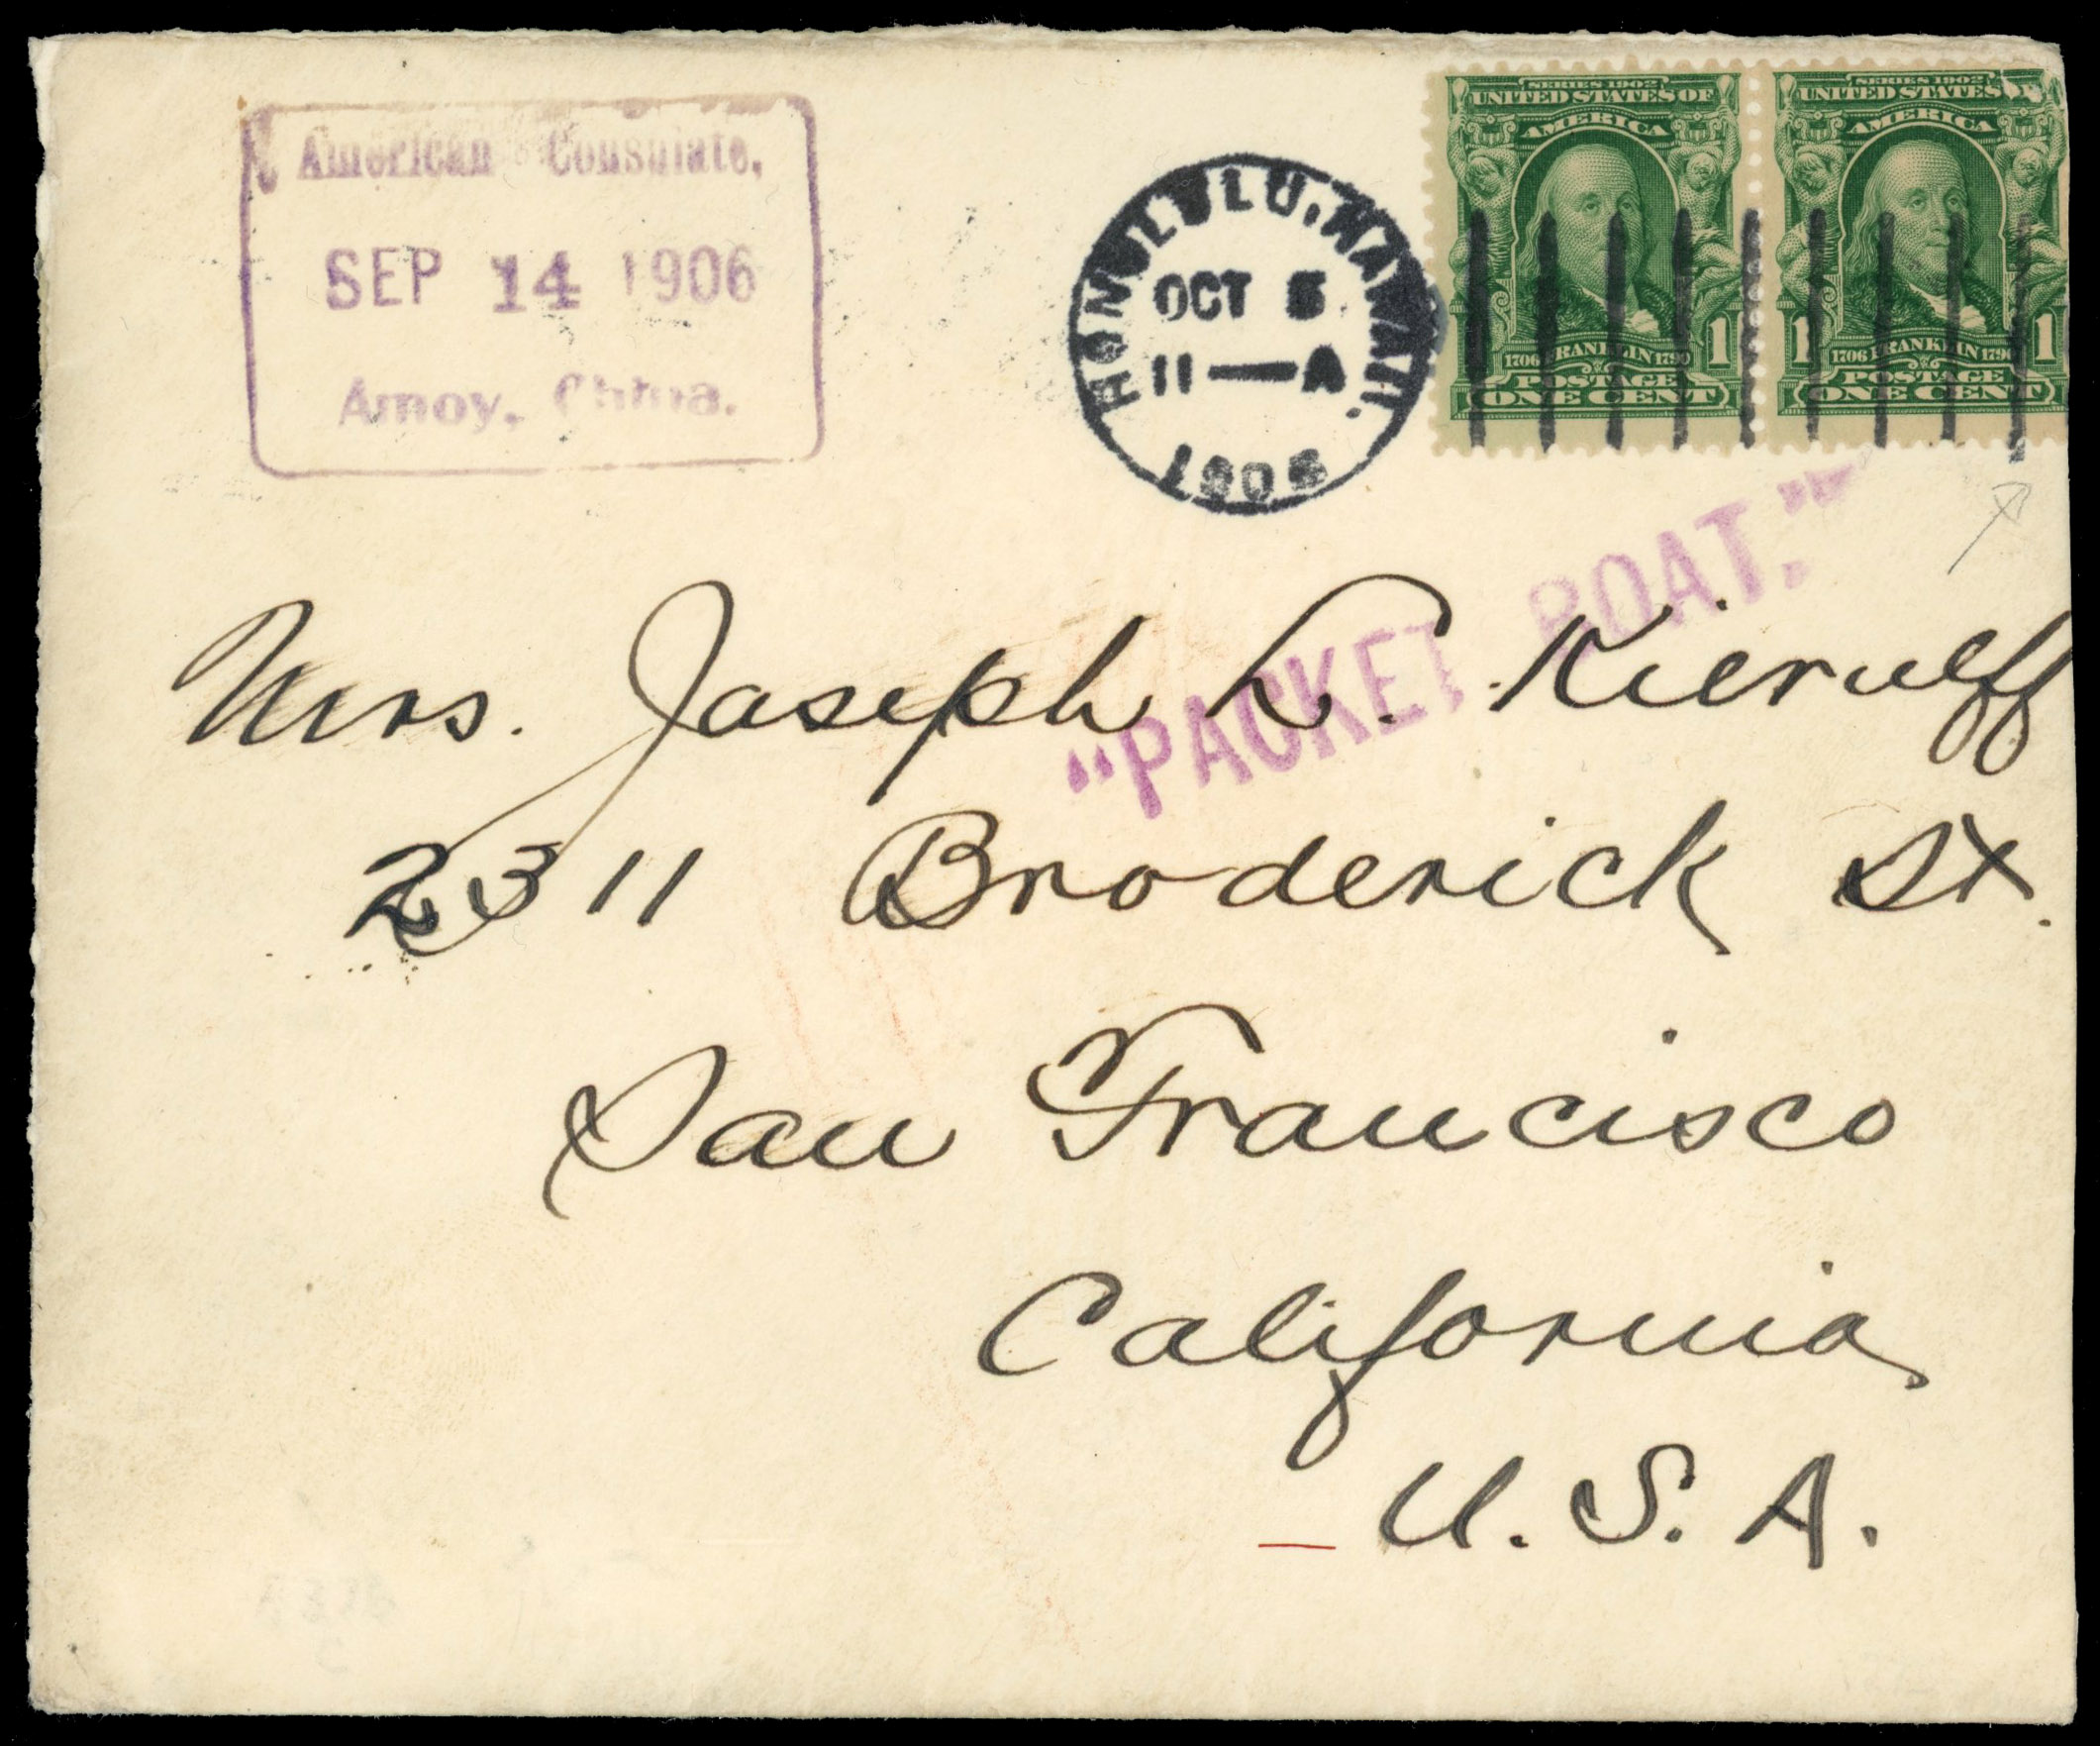 American Consulate,
SEP 14 1906
Amoy, China.
HONOLULU, HAWAII.
OCT 5
11—A
1906
SERIES 1902
UNITED STATES OF
AMERICA
1706 FRANKLIN 1790
1
POSTAGE
ONE CENT
SERIES 1902
UNITED STATES
AMERICA
1
1706 FRANKLIN 1790
1
POSTAGE
ONE CENT
"PACKET BOAT."
Mrs. Joseph L. Kierulff
2311 Broderick St.
San Francisco
California
U. S. A.